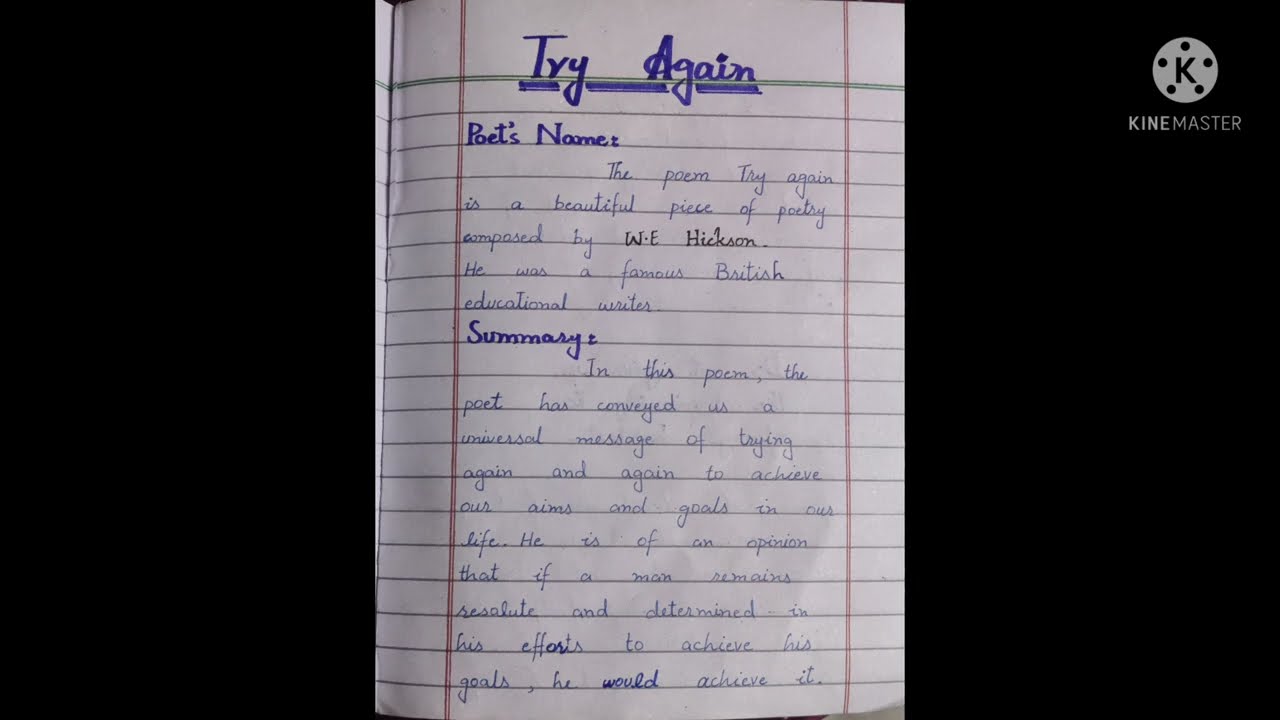 Try Again
Poet's Name:
The poem Try again
is a beautiful piece of poetry
composed by W.E Hickson.
He was a famous British
educational writer.
Summary:
In this poem, the
poet has conveyed us a
universal message of trying
again and again to achieve
our aims and goals in our
life. He is of an opinion
that if a man remains
resolute and determined in
his efforts to achieve his
goals, he would achieve it.
K
KINEMASTER